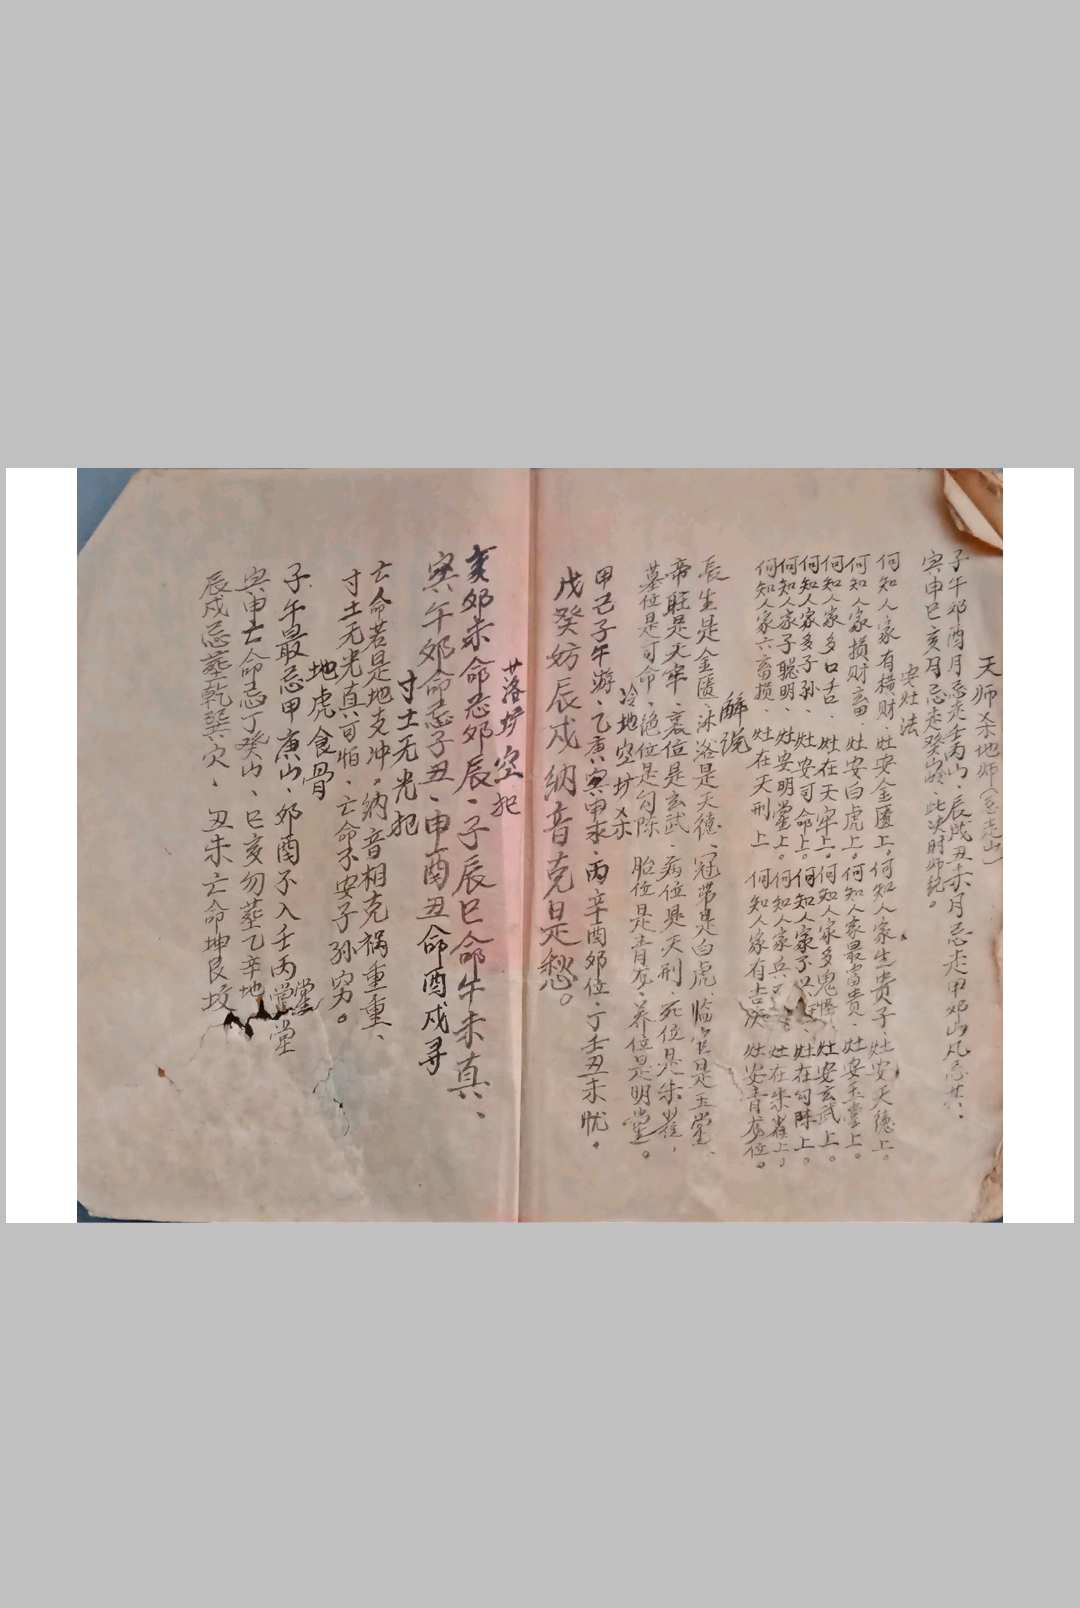 天师杀地师(忌走山)
子午卯酉月忌走壬丙山、辰戌丑未月忌走甲卯山凡忌
寅申巳亥月忌走癸山此决时师
安灶法
何知人家有横财、灶安金匮上。何知人家生贵子、灶安天德上。
何知人家损财畜、灶安白虎上。何知人家最富贵、灶安玉堂上。
何知人家多口舌、灶在天牢上。何知人家多鬼怪、灶安玄武上。
何知人家多子孙、灶安司命上。何知人家子、灶在勾陈上。
何知人家子聪明、灶安明堂上。何知人家兵、灶在朱雀上。
何知人家六畜损、灶在天刑上 何知人家有吉庆 灶安青龙位。
解说
长生是金匮、沐浴是天德、冠带是白虎、临官是玉堂、
帝旺是天牢、衰位是玄武、病位是天刑、死位是朱雀、
墓位是司命、绝位是勾陈、胎位是青龙、养位是明堂。
冷地空坟杀
甲己子午游、乙庚寅申求、丙辛酉卯位、丁壬丑未忧。
戊癸妨辰戌 納音克是愁。
落坟空犯
亥卯未命忌卯辰、子辰巳命午未真、
寅午卯命忌子丑、申酉丑命酉戌寻
寸土无光犯
亡命若是地支冲、纳音相克祸重重、
寸土无光真可怕、亡命不安子孙穷。
地虎食骨
子午最忌甲庚山、卯酉不入壬丙堂
寅申亡命忌丁癸山、巳亥勿葬乙辛地
辰戌忌葬乾巽穴、丑未亡命坤艮坟